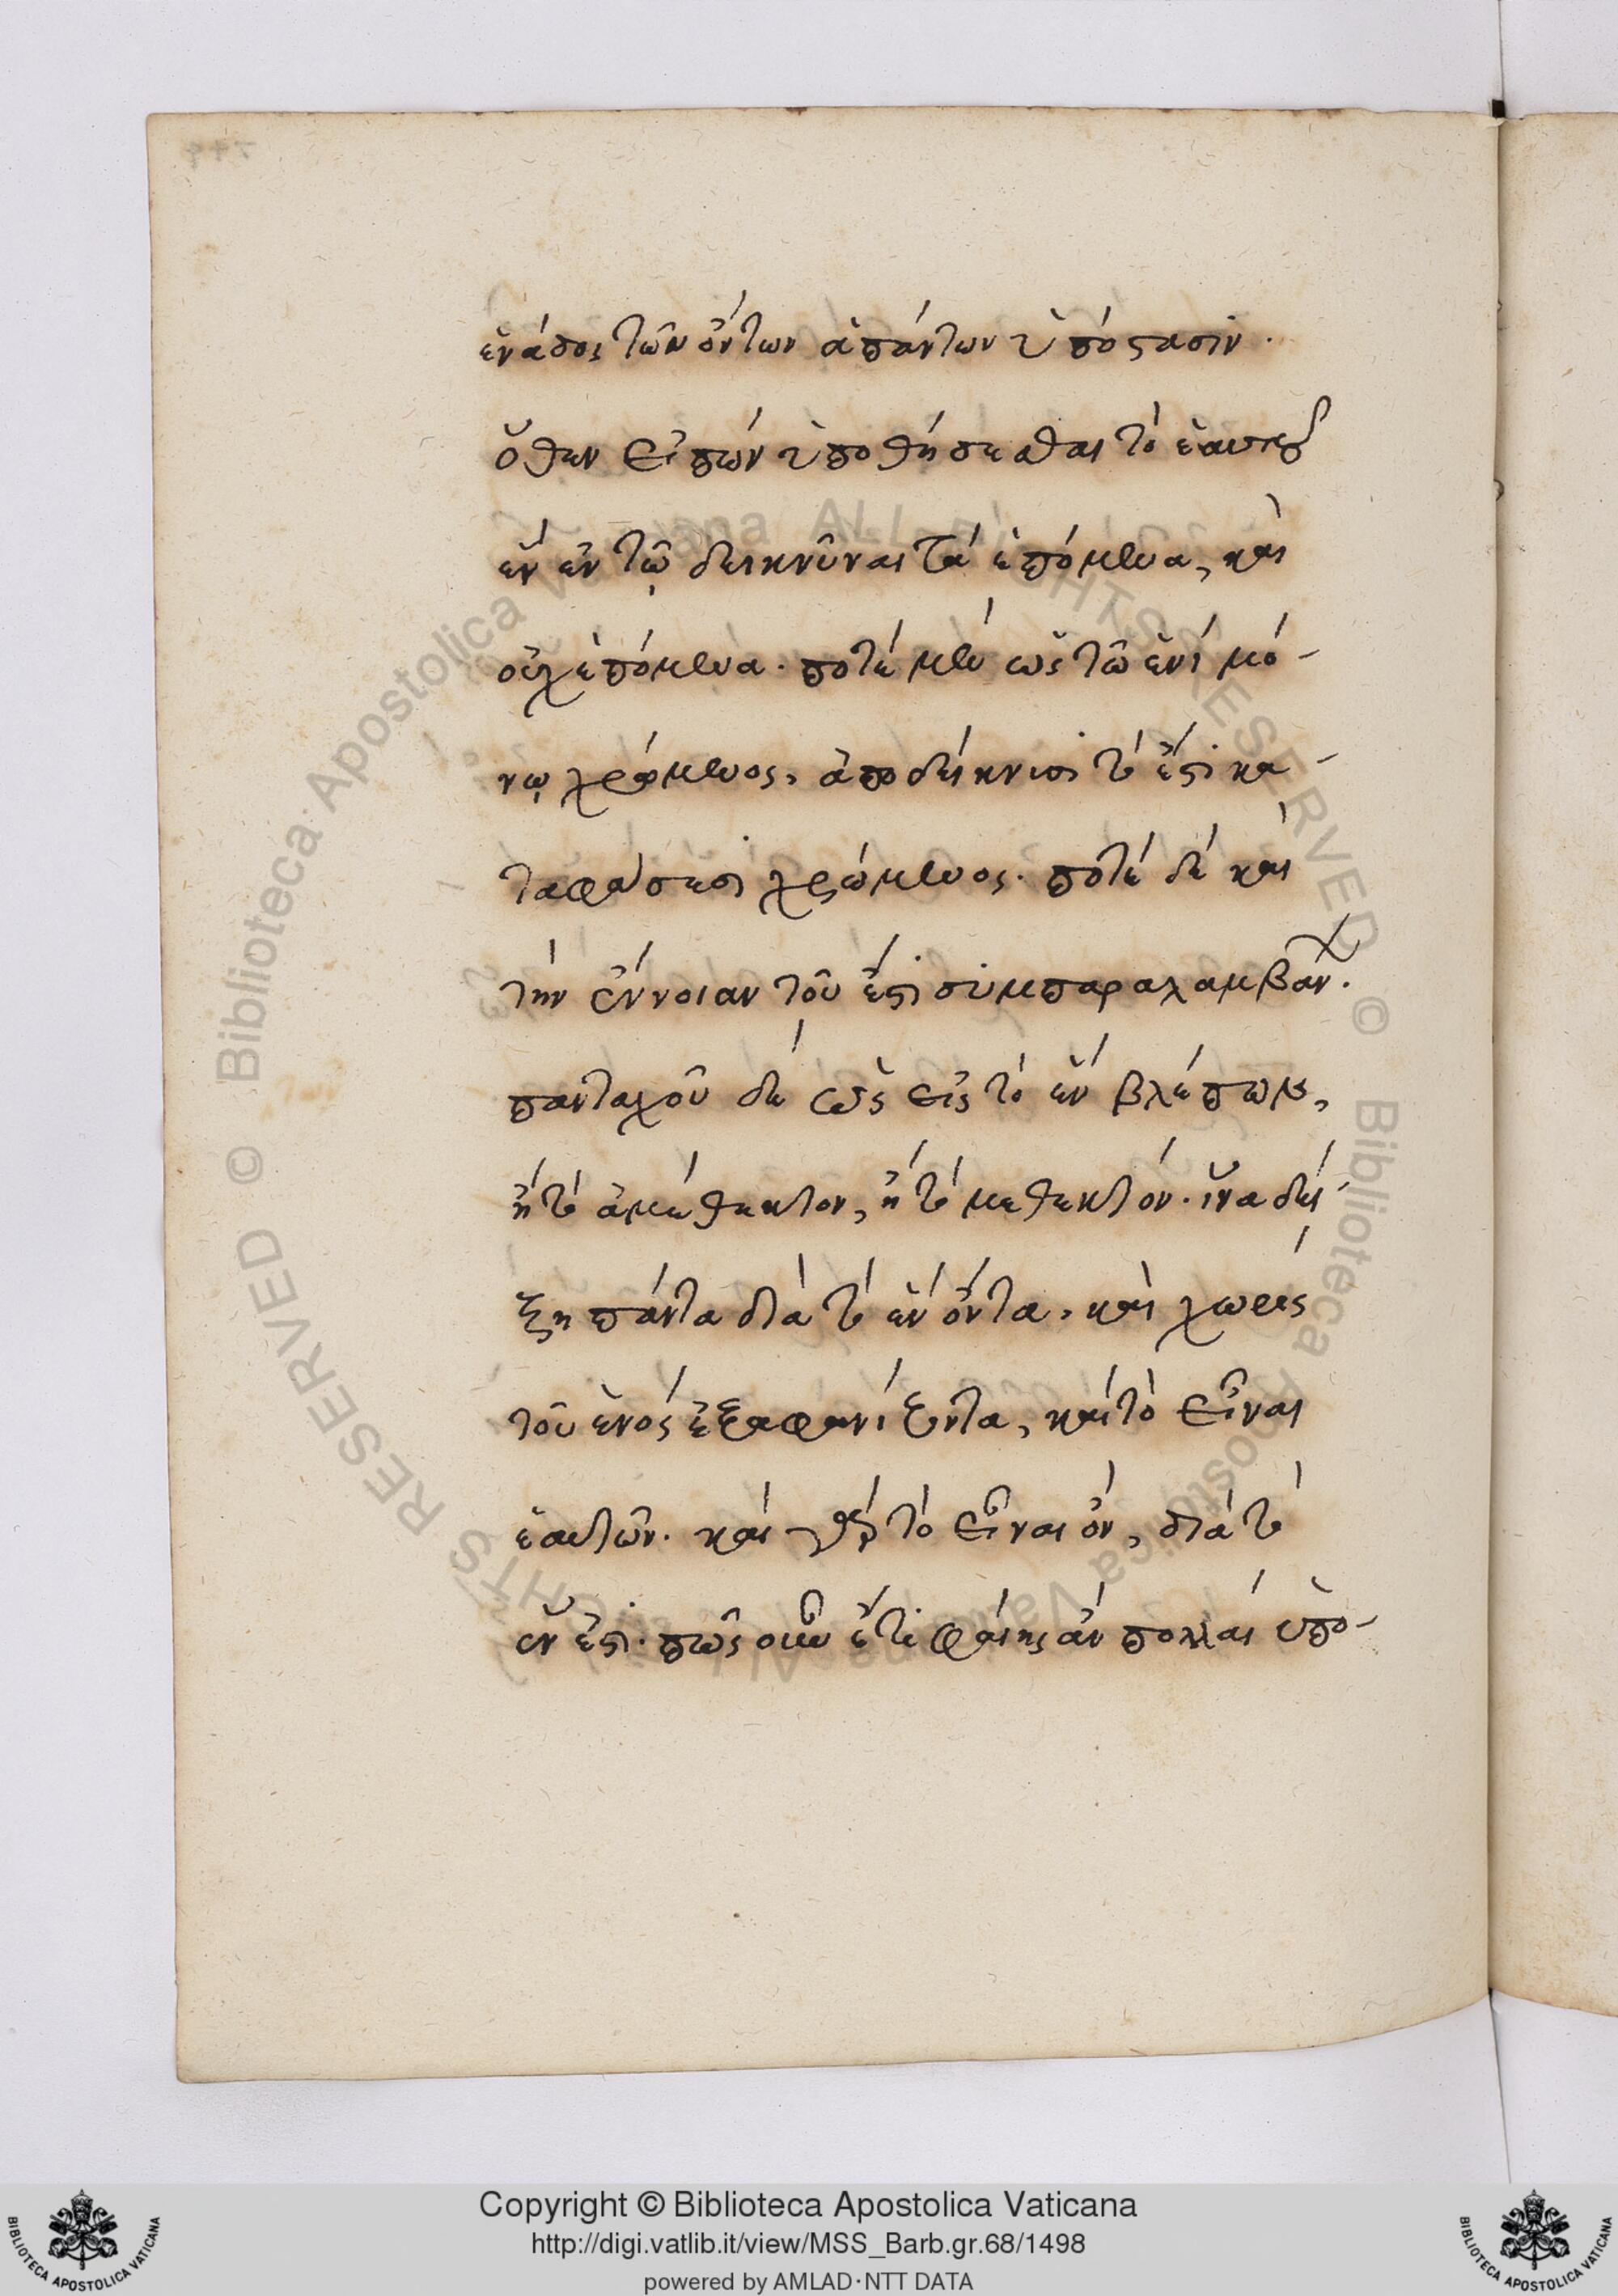 ἑνάδος τῶν ὄντων ἁπάντων ὑπόστασιν.
ὅθεν εἰπὼν ὑποθήσεσθαι τὸ ἑαυτοῦ
ἓν ἐν τῷ δεικνύναι τὰ ἑπόμενα, καὶ
οὐχ ἑπόμενα. ποτὲ μὲν ὡς τῶ ἑνὶ μό-
νῳ χρώμενος, ἀποδείκνυσι τὸ ἔστι κα-
ταφάσκει χρώμενος. ποτὲ δὲ καὶ
τὴν ἔννοιαν τοῦ ἔστι συμπαραλαμβάνων.
πανταχοῦ δὲ ὡς εἰς τὸ ἓν βλέπων,
ἢ τὸ ἀμέθεκτον, ἢ τὸ μεθεκτόν. ἵνα δεί-
ξη πάντα διὰ τὸ ἓν ὄντα, καὶ χωρὶς
τοῦ ἑνὸς ἐξαφανίζοντα, καὶ τὸ εἶναι
ἑαυτῶν. καὶ γὰρ τὸ εἶναι ὂν, διὰ τὸ
ἕν ἐστι. πῶς οὖν ἔτι φαίης ἂν πολλαὶ ὑπο-
Copyright © Biblioteca Apostolica Vaticana
http://digi.vatlib.it/view/MSS_Barb.gr.68/1498
powered by AMLAD·NTT DATA
BIBLIOTECA APOSTOLICA VATICANA
BIBLIOTECA APOSTOLICA VATICANA